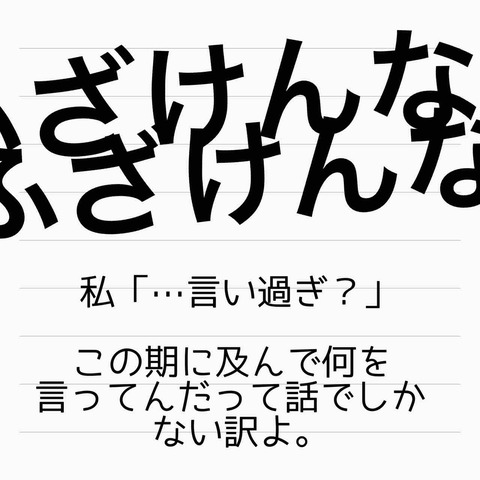 ふざけんな
ふざけんな
私「…言い過ぎ？」
この期に及んで何を
言ってんだって話でしか
ない訳よ。